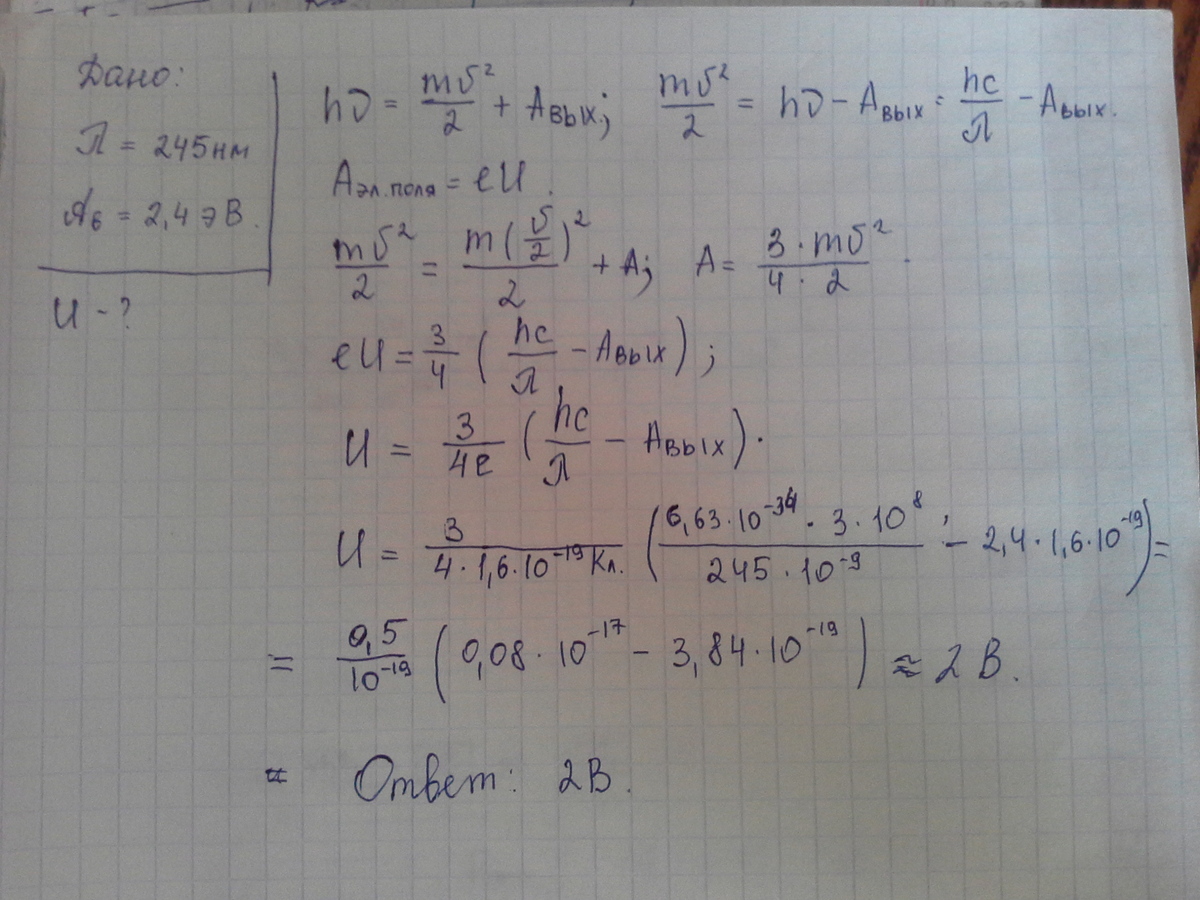 Дано:
λ = 245нм
Aв = 2,4 эВ.
U - ?
hν = mv²/2 + Aвых; mv²/2 = hν - Aвых = hc/λ - Aвых.
Aэл.поля = eU.
mv²/2 = m(v/2)²/2 + A; A = 3·mv²/4·2.
eU = 3/4 (hc/λ - Aвых);
U = 3/4e (hc/λ - Aвых).
U = 3/4·1,6·10⁻¹⁹Кл. (6,63·10⁻³⁴·3·10⁸/245·10⁻⁹ - 2,4·1,6·10⁻¹⁹) =
= 0,5/10⁻¹⁹ (0,08·10⁻¹⁷ - 3,84·10⁻¹⁹) ≈ 2 В.
Ответ: 2В.